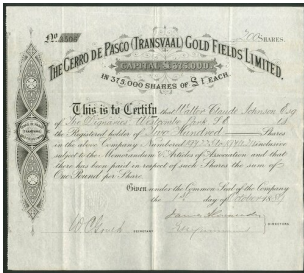 No
200 SHARES.
THE CERRO DE PASCO (TRANSVAAL) GOLD FIELDS LIMITED.
CAPITAL £375,000.
IN 375,000 SHARES OF £1 EACH.
This is to Certify that Walter Claude Johnson Esq
of
the Registered holder of Two Hundred Shares
in the above Company Numbered inclusive
subject to the Memorandum & Articles of Association and that
there has been paid in respect of such Shares the sum of
One Pound per Share.
Given under the Common Seal of the Company
the day of October
SECRETARY